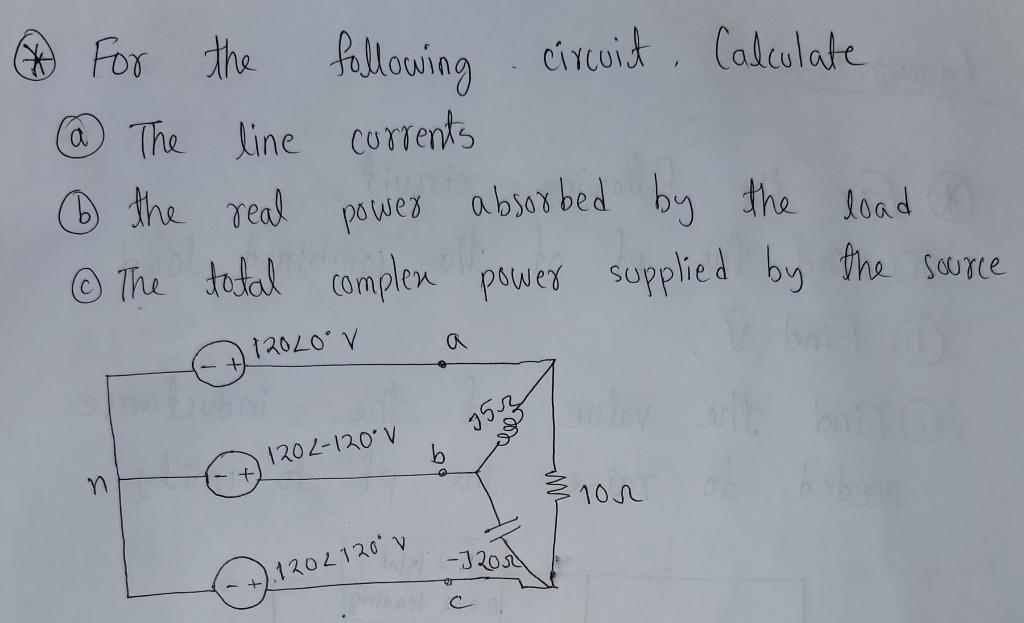 * For the following circuit. Calculate
(a) The line currents
(b) the real power absorbed by the load
(c) The total complex power supplied by the source
120∠0° V
a
j5Ω
120∠-120° V
b
n
10Ω
120∠120° V
-J20Ω
c